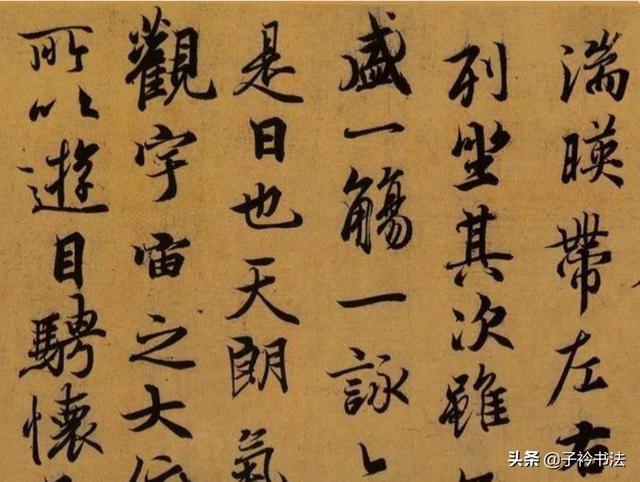 湍暎帶左右
列坐其次雖
盛一觴一詠
是日也天朗氣
觀宇宙之大
所以遊目騁懷
头条 @子衿书法